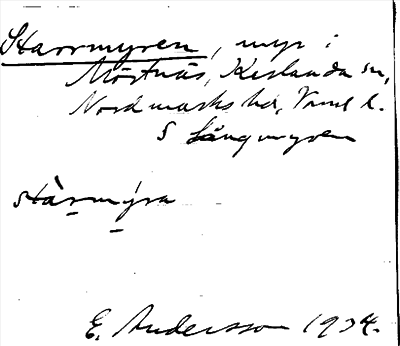 Starrmyren, myr i
Mörtnäs, Karlanda sn,
Nordmarks hd, Värml l.
S Långmyren
stàrmýra
E. Andersson 1934.